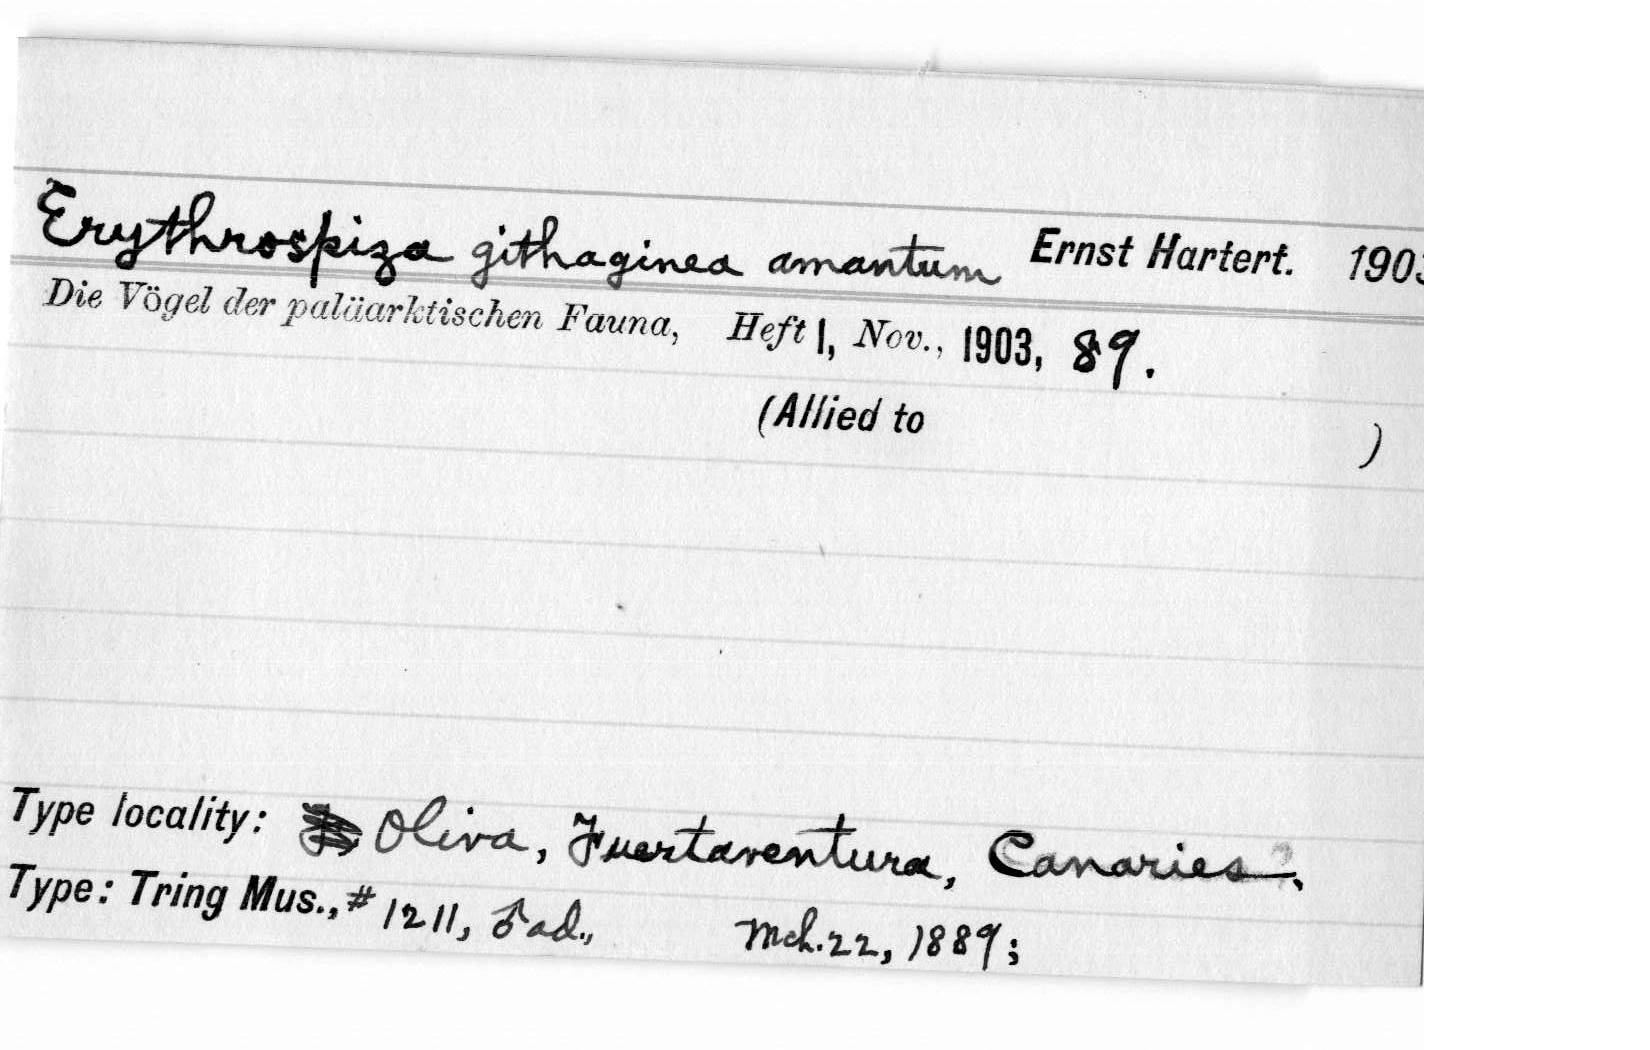 Erythrospiza githaginea amantum Ernst Hartert. 1903
Die Vögel der paläarktischen Fauna, Heft 1, Nov., 1903, 89.
(Allied to )
Type locality: Oliva, Fuertaventura, Canaries.
Type: Tring Mus., # 1211, ♂ ad., Mch. 22, 1889;